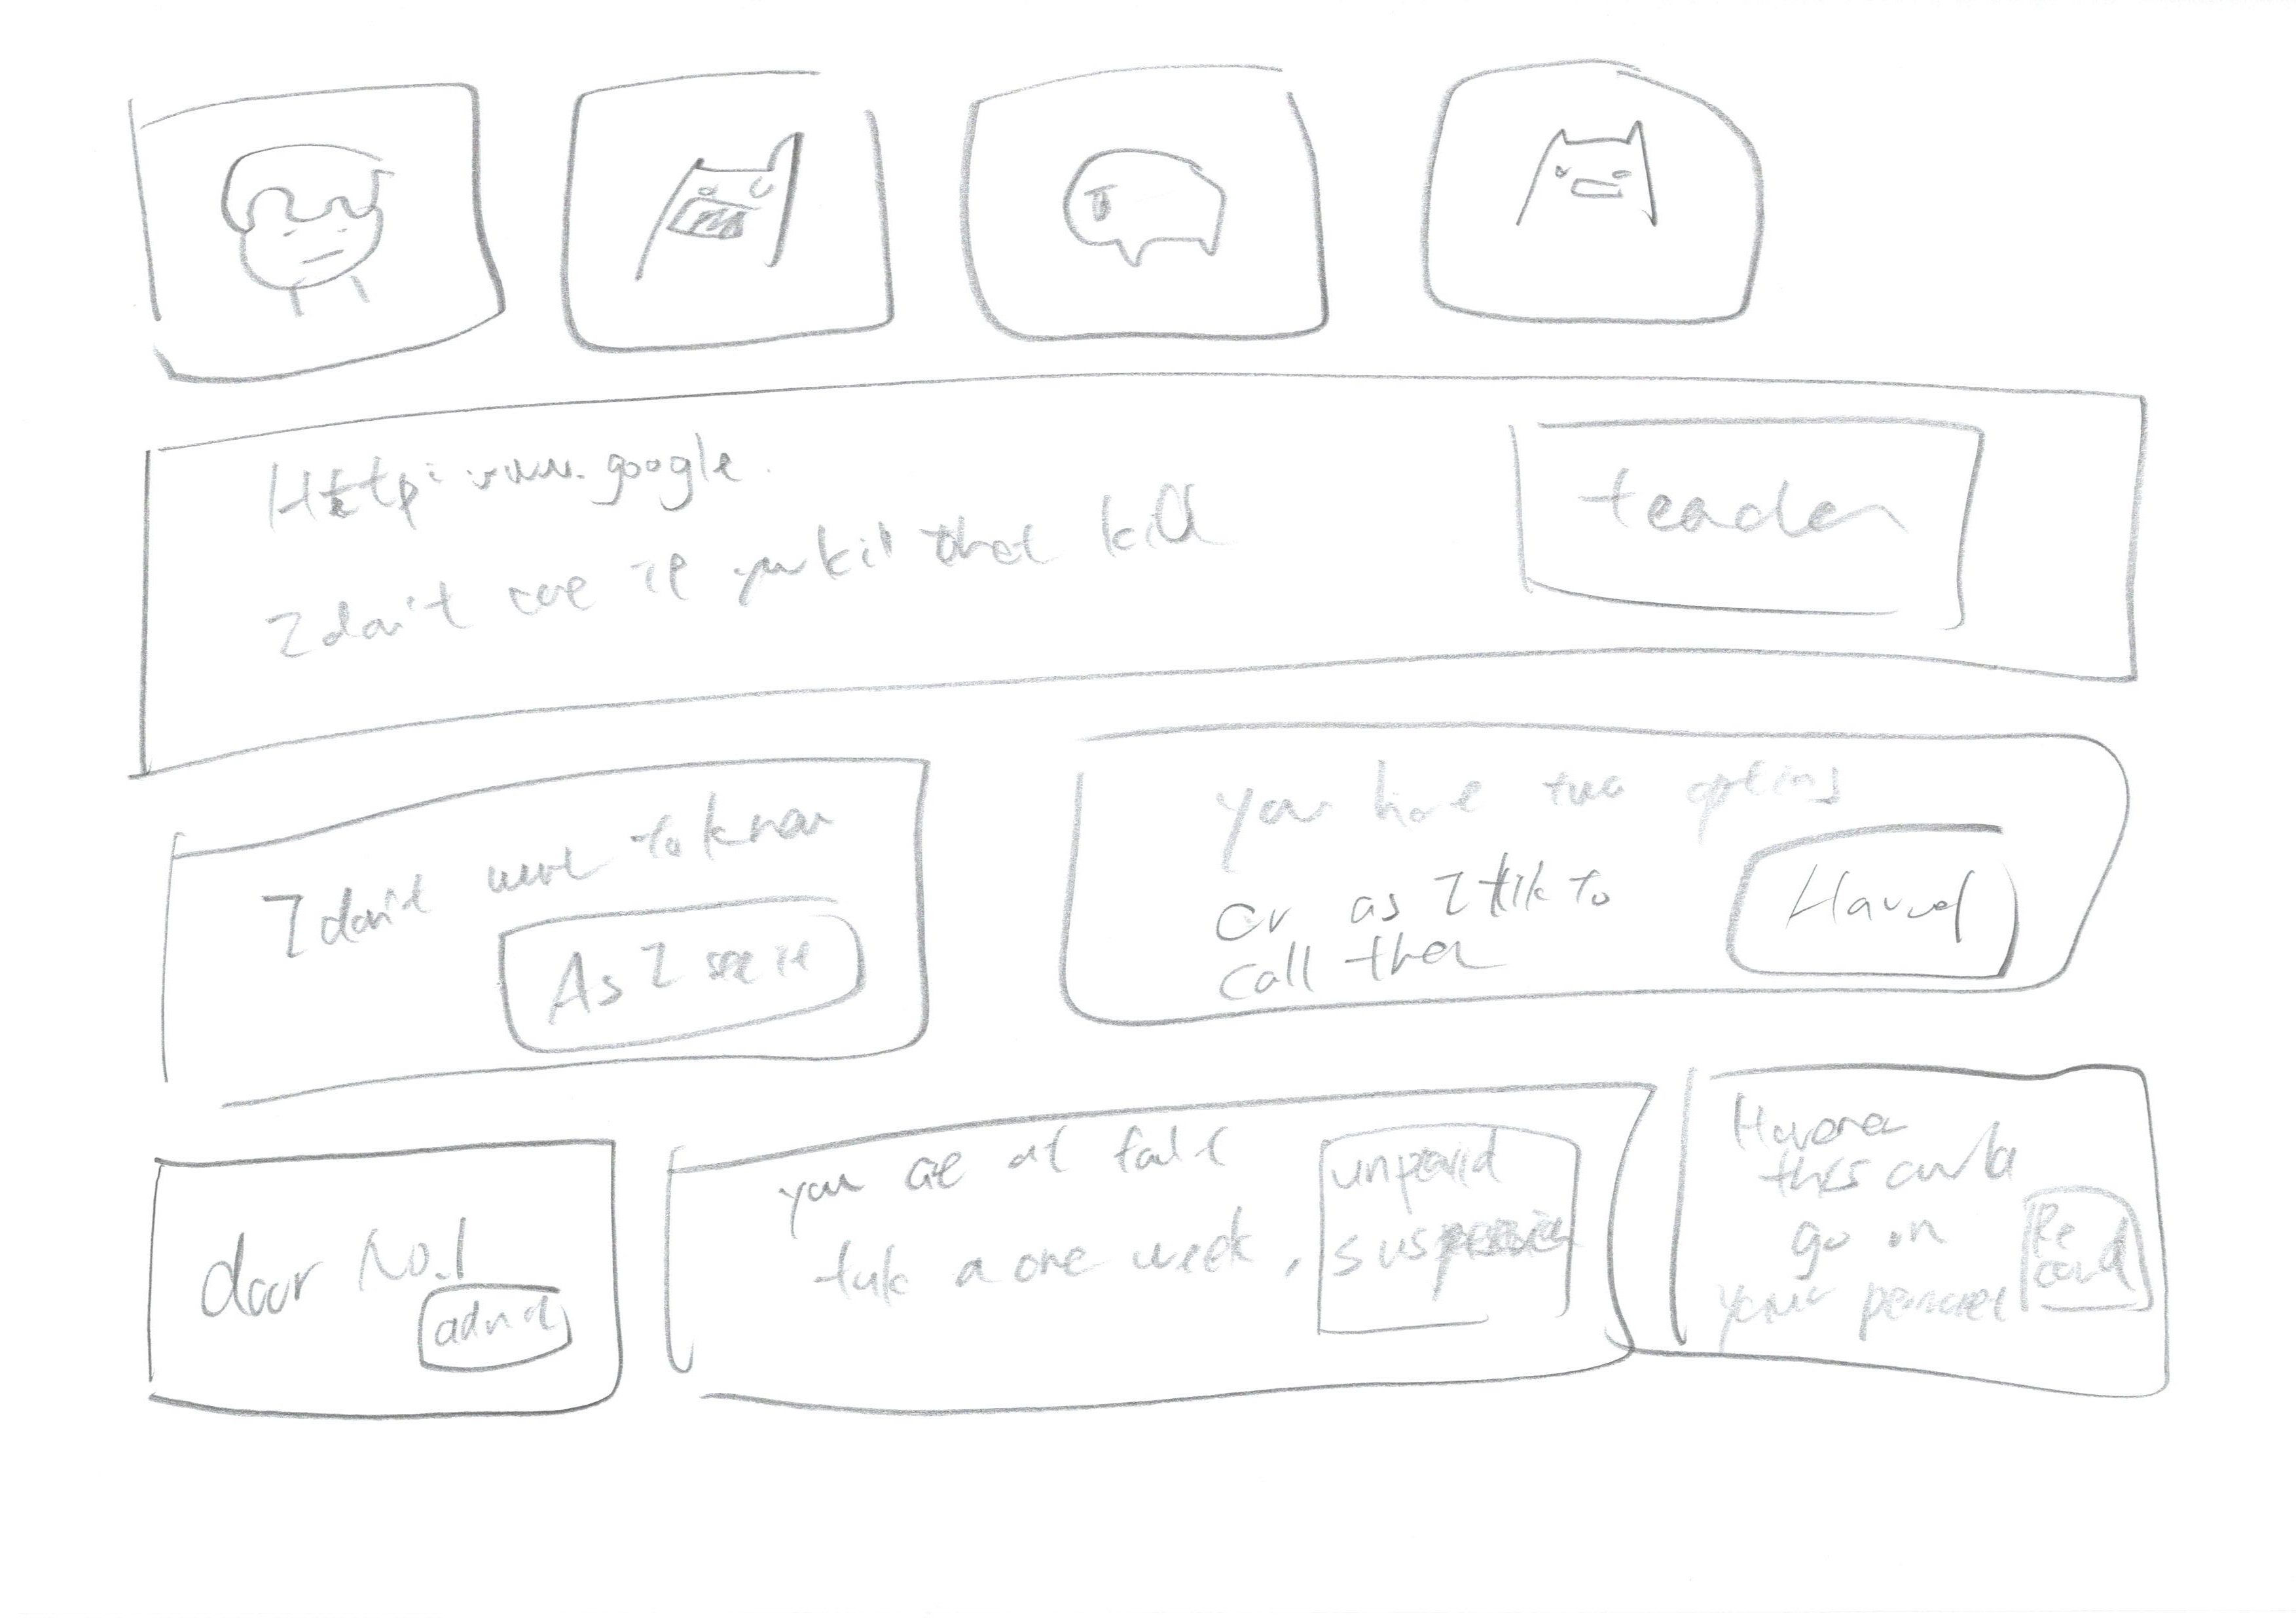 Http: www.google.
I don't care if you kill that kill
I don't want to know
As I see it
you have two options
or as I like to
call them
door No.1
you are at fault
take a one week,
unpaid
However
this could
go on
your personal
Re
cord